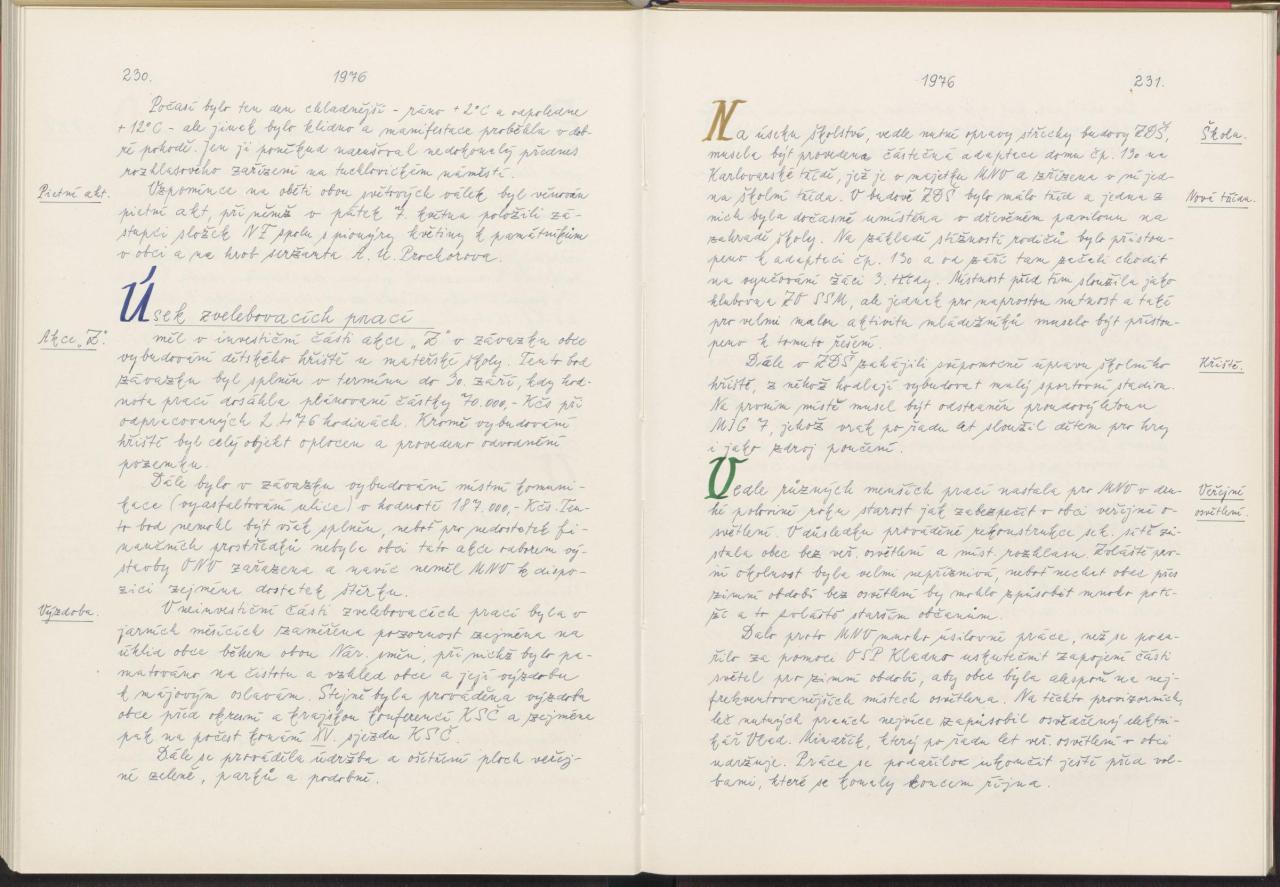 230. 1976
Počasí bylo ten den chladnější - ráno +2°C a odpoledne
+12°C - ale jinak bylo klidno a manifestace proběhla v dob-
ré pohodě. Jen ji poněkud narušoval nedokonalý přednes
rozhlasového zařízení na tuchlovickém náměstí.
Pietní akt.
Vzpomínce na oběti obou světových válek byl věnován
pietní akt, při němž v pátek 7. května položili zá-
stupci složek NF spolu s pionýry květiny k památníkům
v obci a na hrob seržanta A. U. Prochorova.
Úsek zvelebovacích prací
Akce „Z".
měl v investiční části akce „Z" v závazku obce
vybudování dětského hřiště u mateřské školy. Tento bod
závazku byl splněn v termínu do 30. září, kdy hod-
nota prací dosáhla plánované částky 70.000,- Kčs při
odpracovaných 2.476 hodinách. Kromě vybudování
hřiště byl celý objekt oplocen a provedeno odvodnění
pozemku.
Dále bylo v závazku vybudování místní komuni-
kace (vyasfaltování ulice) v hodnotě 187.000,- Kčs. Ten-
to bod nemohl být však splněn, neboť pro nedostatek fi-
nančních prostředků nebyla obci tato akce odborem vý-
stavby ONV zařazena a navíc neměl MNV k dispo-
zici zejména dostatek štěrku.
Výzdoba.
V neinvestiční části zvelebovacích prací byla v
jarních měsících zaměřena pozornost zejména na
úklid obce během obou Nár. směn, při nichž bylo pa-
matováno na čistotu a vzhled obce a její výzdobu
k májovým oslavám. Stejně byla prováděna výzdoba
obce před okresní a krajskou konferencí KSČ a zejména
pak na počest konání XV. sjezdu KSČ.
Dále se prováděla údržba a ošetření ploch veřej-
né zeleně, parků a podobně.
1976 231.
Na úseku školství, vedle nutné opravy střechy budovy ZDŠ,
Škola.
musela být provedena částečná adaptace domu čp. 130 na
Karlovarské třídě, jež je v majetku MNV a zřízena v ní jed-
na školní třída. V budově ZDŠ bylo málo tříd a jedna z
Nová třída.
nich byla dočasně umístěna v dřevěném pavilonu na
zahradě školy. Na základě stížností rodičů bylo přistou-
peno k adaptaci čp. 130 a od září tam začali chodit
na vyučování žáci 3. třídy. Místnost před tím sloužila jako
klubovna ZO SSM, ale jednak pro naprostou nutnost a také
pro velmi malou aktivitu mládežníků muselo být přistou-
peno k tomuto řešení.
Dále v ZDŠ zahájili svépomocně úpravu školního
Hřiště.
hřiště, z něhož hodlají vybudovat malý sportovní stadion.
Na prvním místě musel být odstraněn proudový letoun
MIG 7, jehož vrak po řadu let sloužil dětem pro hry
i jako zdroj poučení.
Vedle různých menších prací nastala pro MNV v dru-
Veřejné
hé polovině roku starost jak zabezpečit v obci veřejné o-
osvětlení.
světlení. V důsledku prováděné rekonstrukce sek. sítě zů-
stala obec bez veř. osvětlení a míst. rozhlasu. Zvláště prv-
ní okolnost byla velmi nepříznivá, neboť nechat obec přes
zimní období bez osvětlení by mohlo způsobit mnoho potí-
ží a to zvláště starším občanům.
Dalo proto MNV mnoho úsilovné práce, než se poda-
řilo za pomoci OSP Kladno uskutečnit zapojení části
světel pro zimní období, aby obec byla alespoň na nej-
frekventovanějších místech osvětlena. Na těchto provizorních,
leč nutných pracích nejvíce zapůsobil osvědčený elektri-
kář Vlad. Minařík, který po řadu let veř. osvětlení v obci
udržuje. Práce se podařilo ukončit ještě před vol-
bami, které se konaly koncem října.